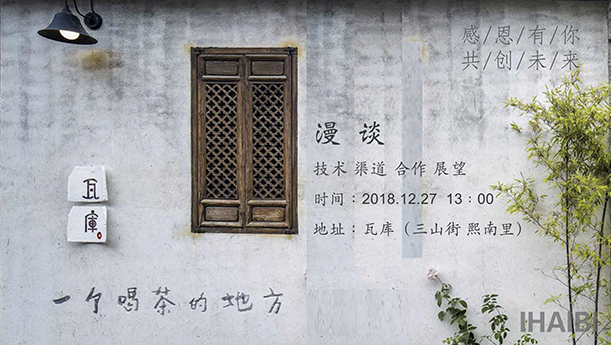 感/恩/有/你
共/创/未/来
漫 谈
技术 渠道 合作 展望
时间：2018.12.27 13：00
地址：瓦库（三山街 熙南里）
瓦
庫
一个喝茶的地方
IHAIBI